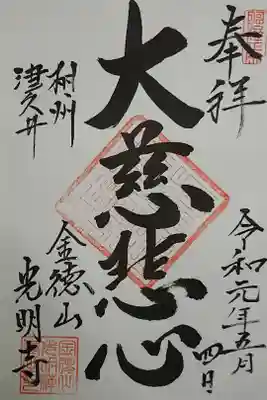 奉祥
令和元年五月
四日
大慈悲心
相州
津久井
金徳山
光明寺